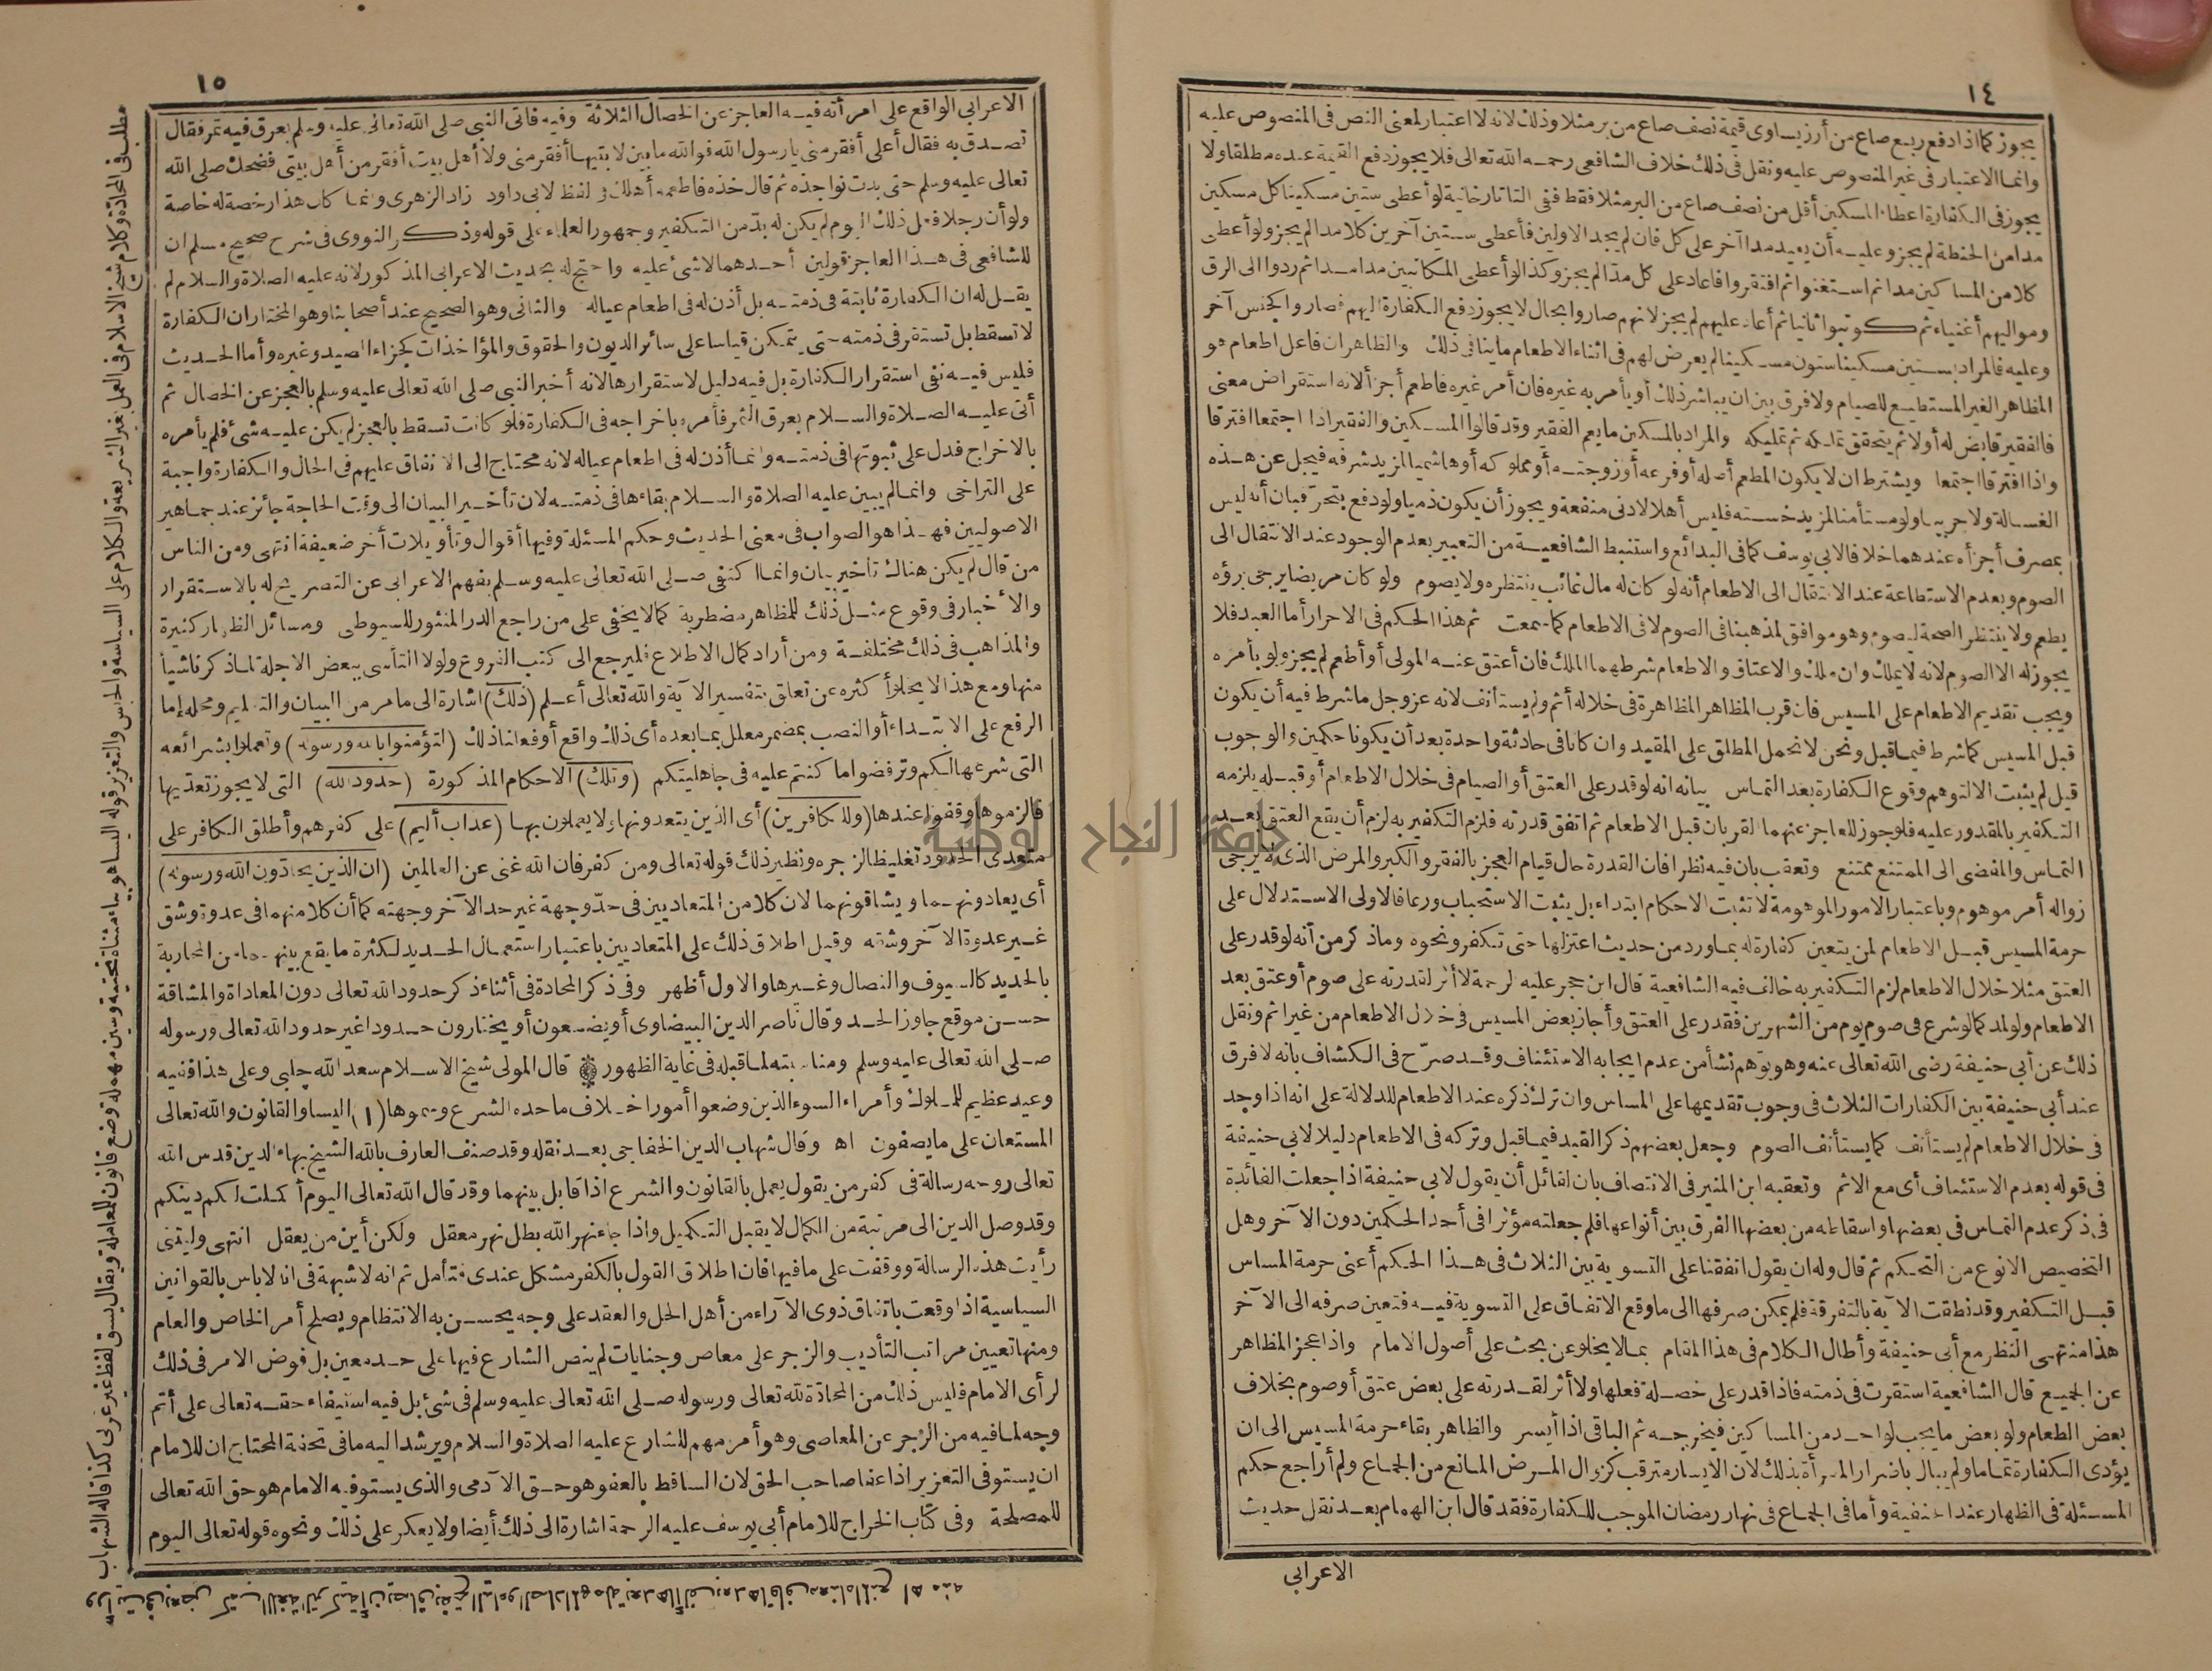 ١٤
يجوز كما اذا دفع ربع صاع من أرز يساوى قيمة نصف صاع من بر مثلا وذلك لانه لا اعتبار لمعنى النص فى المنصوص عليه
وانما الاعتبار فى غير المنصوص عليه ونقل فى ذلك خلاف الشافعى رحمه الله تعالى فلا يجوز دفع القيمة عنده مطلقا ولا
يجوز فى الكفارة اعطاء المسكين أقل من نصف صاع من البر مثلا فقط ففى التاتارخانية لو أعطى ستين مسكينا كل مسكين
مدا من الحنطة لم يجز وعليه أن يعيد مدا آخر على كل فان لم يجد الاولين فأعطى ستين آخرين كلا مدا لم يجز ولو أعطى
كلا من المساكين مدا ثم استغنوا ثم افتقروا فاعاد على كل مدا لم يجز وكذا لو أعطى المكاتبين مدا مدا ثم ردوا الى الرق
ومواليهم أغنياء ثم كوتبوا ثانيا ثم أعاد عليهم لم يجز لانهم صاروا بحال لا يجوز دفع الكفارة اليهم فصاروا كجنس آخر
وعليه فالمراد بستين مسكينا ستون مسكينا لم يعرض لهم فى اثناء الاطعام ما ينافى ذلك والظاهر ان فاعل اطعام هو
المظاهر الغير المستطيع للصيام ولا فرق بين ان يباشر ذلك أو يأمر به غيره فان أمر غيره فاطعم أجزأ لانه استقراض معنى
فالفقير قابض له أولا ثم يتحقق تملكه ثم تمليكه والمراد بالمسكين ما يعم الفقير وقد قالوا المسكين والفقير اذا اجتمعا افترقا
واذا افترقا اجتمعا ويشترط ان لا يكون المطعم أصله أو فرعه أو زوجته أو مملوكه أو هاشميا لمزيد شرفه فيجل عن هذه
الغسالة ولا حربيا ولو مستأمنا لمزيد خسته فليس أهلا لادنى منفعة ويجوز أن يكون ذميا ولو دفع بتحر فبان أنه ليس
بمصرف أجزأه عندهما خلافا لابى يوسف كما فى البدائع واستنبط الشافعية من التعبير بعدم الوجود عند الانتقال الى
الصوم وبعدم الاستطاعة عند الانتقال الى الاطعام أنه لو كان له مال غائب ينتظره ولا يصوم ولو كان مريضا يرجى برؤه
يطعم ولا ينتظر الصحة ليصوم وهو موافق لمذهبنا فى الصوم لا فى الاطعام كما سمعت ثم هذا الحكم فى الاحرار أما العبد فلا
يجوز له الا الصوم لانه لا يملك وان ملك والاعتاق والاطعام شرطهما الملك فان أعتق عنه المولى أو أطعم لم يجز ولو بأمره
ويجب تقديم الاطعام على المسيس فان قرب المظاهر المظاهرة فى خلاله أثم ولم يستأنف لانه عز وجل ما شرط فيه أن يكون
قبل المسيس كما شرط فيما قبل ونحن لا نحمل المطلق على المقيد وان كانا فى حادثة واحدة بعد أن يكونا حكمين والوجوب
قبل لم يثبت الا لتوهم وقوع الكفارة بعد التماس بيانه انه لو قدر على العتق أو الصيام فى خلال الاطعام أو قبله يلزمه
التكفير بالمقدور عليه فلو جوز للعاجز عنهما القربان قبل الاطعام ثم اتفق قدرته فلزم التكفير به لزم أن يقع العتق بعد
التماس والمفضى الى الممتنع ممتنع وتعقب بان فيه نظرا فان القدرة حال قيام العجز بالفقر والكبر والمرض الذى لا يرجى
زواله أمر موهوم وباعتبار الامور الموهومة لا تثبت الاحكام ابتداء بل يثبت الاستحباب ورعا فالاولى الاستدلال على
حرمة المسيس قبل الاطعام لمن يتعين كفارة له بما ورد من حديث اعتزلها حتى تكفر ونحوه وما ذكر من أنه لو قدر على
العتق مثلا خلال الاطعام لزم التكفير به خالف فيه الشافعية قال ابن حجر عليه الرحمة لا أثر لقدرته على صوم أو عتق بعد
الاطعام ولو لمد كما لو شرع فى صوم يوم من الشهرين فقدر على العتق وأجاز بعض المسيس فى خلال الاطعام من غير اثم ونقل
ذلك عن أبى حنيفة رضى الله تعالى عنه وهو توهم نشأ من عدم ايجابه الاستئناف وقد صرح فى الكشاف بانه لا فرق
عند أبى حنيفة بين الكفارات الثلاث فى وجوب تقديمها على المساس وان ترك ذكره عند الاطعام للدلالة على انه اذا وجد
فى خلال الاطعام لم يستأنف كما يستأنف الصوم وجعل بعضهم ذكر القيد فيما قبل وتركه فى الاطعام دليلا لابى حنيفة
فى قوله بعدم الاستئناف أى مع الاثم وتعقبه ابن المنير فى الانتصاف بان لقائل أن يقول لابى حنيفة اذا جعلت الفائدة
فى ذكر عدم التماس فى بعضها واسقاطه من بعضها الفرق بين أنواعها فلم جعلته مؤثرا فى أحد الحكمين دون الآخر وهل
التخصيص الا نوع من التحكم ثم قال وله ان يقول اتفقنا على التسوية بين الثلاث فى هذا الحكم أعنى حرمة المساس
قبل التكفير وقد نطقت الآية بالتفرقة فلم يمكن صرفها الى ما وقع الاتفاق على التسوية فيه فتعين صرفه الى الآخر
هذا منتهى النظر مع أبى حنيفة وأطال الكلام فى هذا المقام بما لا يخلو عن بحث على أصول الامام واذا عجز المظاهر
عن الجميع قال الشافعية استقرت فى ذمته فاذا قدر على خصلة فعلها ولا أثر لقدرته على بعض عتق أو صوم بخلاف
بعض الطعام ولو بعض ما يجب لواحد من المساكين فيخرجه ثم الباقى اذا أيسر والظاهر بقاء حرمة المسيس الى ان
يؤدى الكفارة تماما ولم يبال باضرار المرأة بذلك لان الايسار مترقب كزوال المرض المانع من الجماع ولم أراجع حكم
المسئلة فى الظهار عند الحنفية وأما فى الجماع فى نهار رمضان الموجب للكفارة فقد قال ابن الهمام بعد نقل حديث
الاعرابى
١٥
الاعرابى الواقع على امرأته فيه العاجز عن الخصال الثلاثة وفيه فاتى النبى صلى الله تعالى عليه وسلم بعرق فيه تمر فقال
تصدق به فقال أعلى أفقر منى يا رسول الله فوالله ما بين لابتيها أفقر منى ولا أهل بيت أفقر من أهل بيتى فضحك صلى الله
تعالى عليه وسلم حتى بدت نواجذه ثم قال خذه فاطعمه أهلك وفى لفظ لابى داود زاد الزهرى وانما كان هذا رخصة له خاصة
ولو أن رجلا فعل ذلك اليوم لم يكن له بد من التكفير وجمهور العلماء على قوله وذكر النووى فى شرح صحيح مسلم ان
للشافعى فى هذا العاجز قولين أحدهما لا شئ عليه واحتج له بحديث الاعرابى المذكور لانه عليه الصلاة والسلام لم
يقل له ان الكفارة ثابتة فى ذمته بل أذن له فى اطعام عياله والثانى وهو الصحيح عند أصحابنا وهو المختار ان الكفارة
لا تسقط بل تستقر فى ذمته حتى يتمكن قياسا على سائر الديون والحقوق والمؤاخذات كجزاء الصيد وغيره وأما الحديث
فليس فيه نفى استقرار الكفارة بل فيه دليل لاستقرارها لانه أخبر النبى صلى الله تعالى عليه وسلم بالعجز عن الخصال ثم
أتى عليه الصلاة والسلام بعرق التمر فأمره باخراجه فى الكفارة فلو كانت تسقط بالعجز لم يكن عليه شئ فلم يأمره
بالاخراج فدل على ثبوتها فى ذمته وانما أذن له فى اطعام عياله لانه محتاج الى الانفاق عليهم فى الحال والكفارة واجبة
على التراخى وانما لم يبين عليه الصلاة والسلام بقاءها فى ذمته لان تأخير البيان الى وقت الحاجة جائز عند جماهير
الاصوليين فهذا هو الصواب فى معنى الحديث وحكم المسئلة وفيها أقوال وتأويلات أخر ضعيفة انتهى ومن الناس
من قال لم يكن هناك تأخير بيان وانما اكتفى صلى الله تعالى عليه وسلم بفهم الاعرابى عن التصريح له بالاستقرار
والأخبار فى وقوع مثل ذلك للمظاهر مضطربة كما لا يخفى على من راجع الدر المنثور للسيوطى ومسائل الظهار كثيرة
والمذاهب فى ذلك مختلفة ومن أراد كمال الاطلاع فليرجع الى كتب الفروع ولولا التأسى ببعض الاجلة لما ذكرنا شيأ
منها ومع هذا لا يخلو أكثره عن تعلق بتفسير الآية والله تعالى أعلم (ذلك) اشارة الى ما مر من البيان والتعليم ومحله إما
الرفع على الابتداء أو النصب بمضمر معلل بما بعده أى ذلك واقع أو فعلنا ذلك (لتؤمنوا بالله ورسوله) وتعملوا بشرائعه
التى شرعها لكم وترفضوا ما كنتم عليه فى جاهليتكم (وتلك) الاحكام المذكورة (حدود الله) التى لا يجوز تعديها
فالزموها وقفوا عندها (وللكافرين) أى الذين يتعدونها ولا يعملون بها (عذاب أليم) على كفرهم وأطلق الكافر على
متعدى الحدود تغليظا لزجره ونظير ذلك قوله تعالى ومن كفر فان الله غنى عن العالمين (ان الذين يحادون الله ورسوله)
أى يعادونهما ويشاقونهما لان كلا من المتعاديين فى حد وجهة غير حد الآخر وجهته كما أن كلا منهما فى عدوة وشق
غير عدوة الآخر وشقه وقيل اطلاق ذلك على المتعاديين باعتبار استعمال الحديد لكثرة ما يقع بينهما من المحاربة
بالحديد كالسيوف والنصال وغيرها والاول أظهر وفى ذكر المحادة فى أثناء ذكر حدود الله تعالى دون المعاداة والمشاقة
حسن موقع جاوز الحد وقال ناصر الدين البيضاوى أو يضعون أو يختارون حدودا غير حدود الله تعالى ورسوله
صلى الله تعالى عليه وسلم ومناسبته لما قبله فى غاية الظهور ۞ قال المولى شيخ الاسلام سعد الله چلبى وعلى هذا ففيه
وعيد عظيم للملوك وأمراء السوء الذين وضعوا أمورا خلاف ما حده الشرع وسموها (١) اليسا والقانون والله تعالى
المستعان على ما يصفون اه وقال شهاب الدين الخفاجى بعد نقله وقد صنف العارف بالله الشيخ بهاء الدين قدس الله
تعالى روحه رسالة فى كفر من يقول يعمل بالقانون والشرع اذا قابل بينهما وقد قال الله تعالى اليوم أكملت لكم دينكم
وقد وصل الدين الى مرتبة من الكمال لا يقبل التكميل واذا جاء نهر الله بطل نهر معقل ولكن أين من يعقل انتهى وليتنى
رأيت هذه الرسالة ووقفت على ما فيها فان اطلاق القول بالكفر مشكل عندى فتأمل ثم انه لا شبهة فى انه لا باس بالقوانين
السياسية اذا وقعت باتفاق ذوى الآراء من أهل الحل والعقد على وجه يحسن به الانتظام ويصلح أمر الخاص والعام
ومنها تعيين مراتب التأديب والزجر على معاص وجنايات لم ينص الشارع فيها على حد معين بل فوض الامر فى ذلك
لرأى الامام فليس ذلك من المحادة لله تعالى ورسوله صلى الله تعالى عليه وسلم فى شئ بل فيه استيفاء حقه تعالى على أتم
وجه لما فيه من الزجر عن المعاصى وهو أمر مهم للشارع عليه الصلاة والسلام ويرشد اليه ما فى تحفة المحتاج ان للامام
ان يستوفى التعزير اذا عفا صاحب الحق لان الساقط بالعفو هو حق الآدمى والذى يستوفيه الامام هو حق الله تعالى
للمصلحة وفى كتاب الخراج للامام أبى يوسف عليه الرحمة اشارة الى ذلك أيضا ولا يعكر على ذلك ونحوه قوله تعالى اليوم
مطلب فى المحادة وكلام شيخ الاسلام فى العمل بغير الشريعة والكلام على السياسة والحبس والتعزير
قوله اليسا هو بياء مثناة تحتية وسين مهملة وضع قانون للمعاملة ويقال يسق لفظ غير عربى كذا قاله الشهاب
جامعة النجاح الوطنية